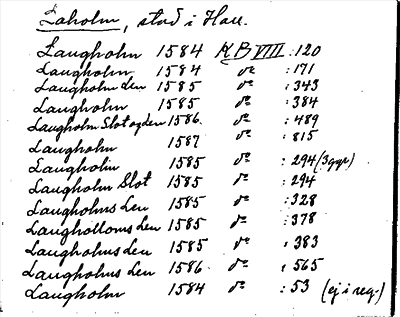 Laholm, stad i Hall.
Laugholm 1584 K B VIII :120
Laugholm 1584 do :171
Laugholm Len 1585 do :343
Laugholm 1585 do :384
Laugholm Slot og Len 1586 do :489
Laugholm 1587 do :815
Laugholm 1585 do :294 (3 ggr)
Laugholm Slot 1585 do :294
Laugholms Len 1585 do :328
Laugholloms Len 1585 do :378
Laugholms Len 1585 do :383
Laugholms Len 1586 do :565
Laugholm 1584 do :53 (ej i reg.)